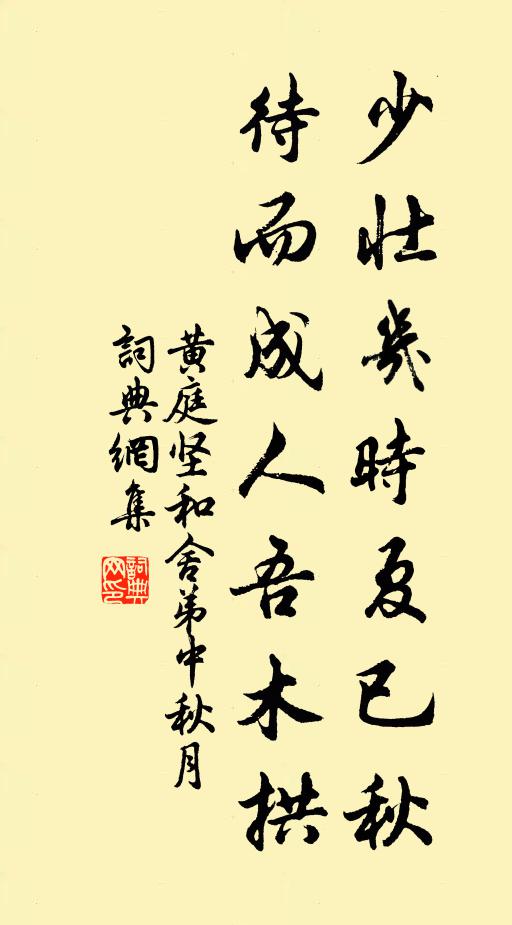 少壯幾時夏已秋
待而成人吾木拱
黄庭坚和舍弟中秋月
詞典網集
詞典網印